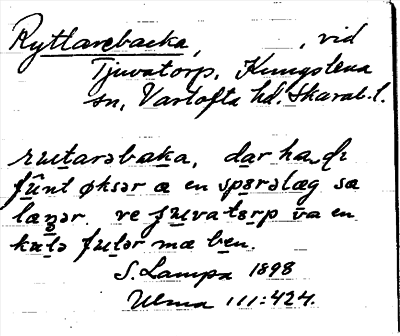 Ryttarebacka, , vid
Tjuvatorp, Kungslena
sn, Vartofta hd. Skarab. l.
rutarabaka, dar ha di
fûnt øksər æ en spərəlæg sə
læŋər. ve ȷuvatərp va en
kulə fulər mæ ben.
S. Lampa 1898
Ulma 111:424.